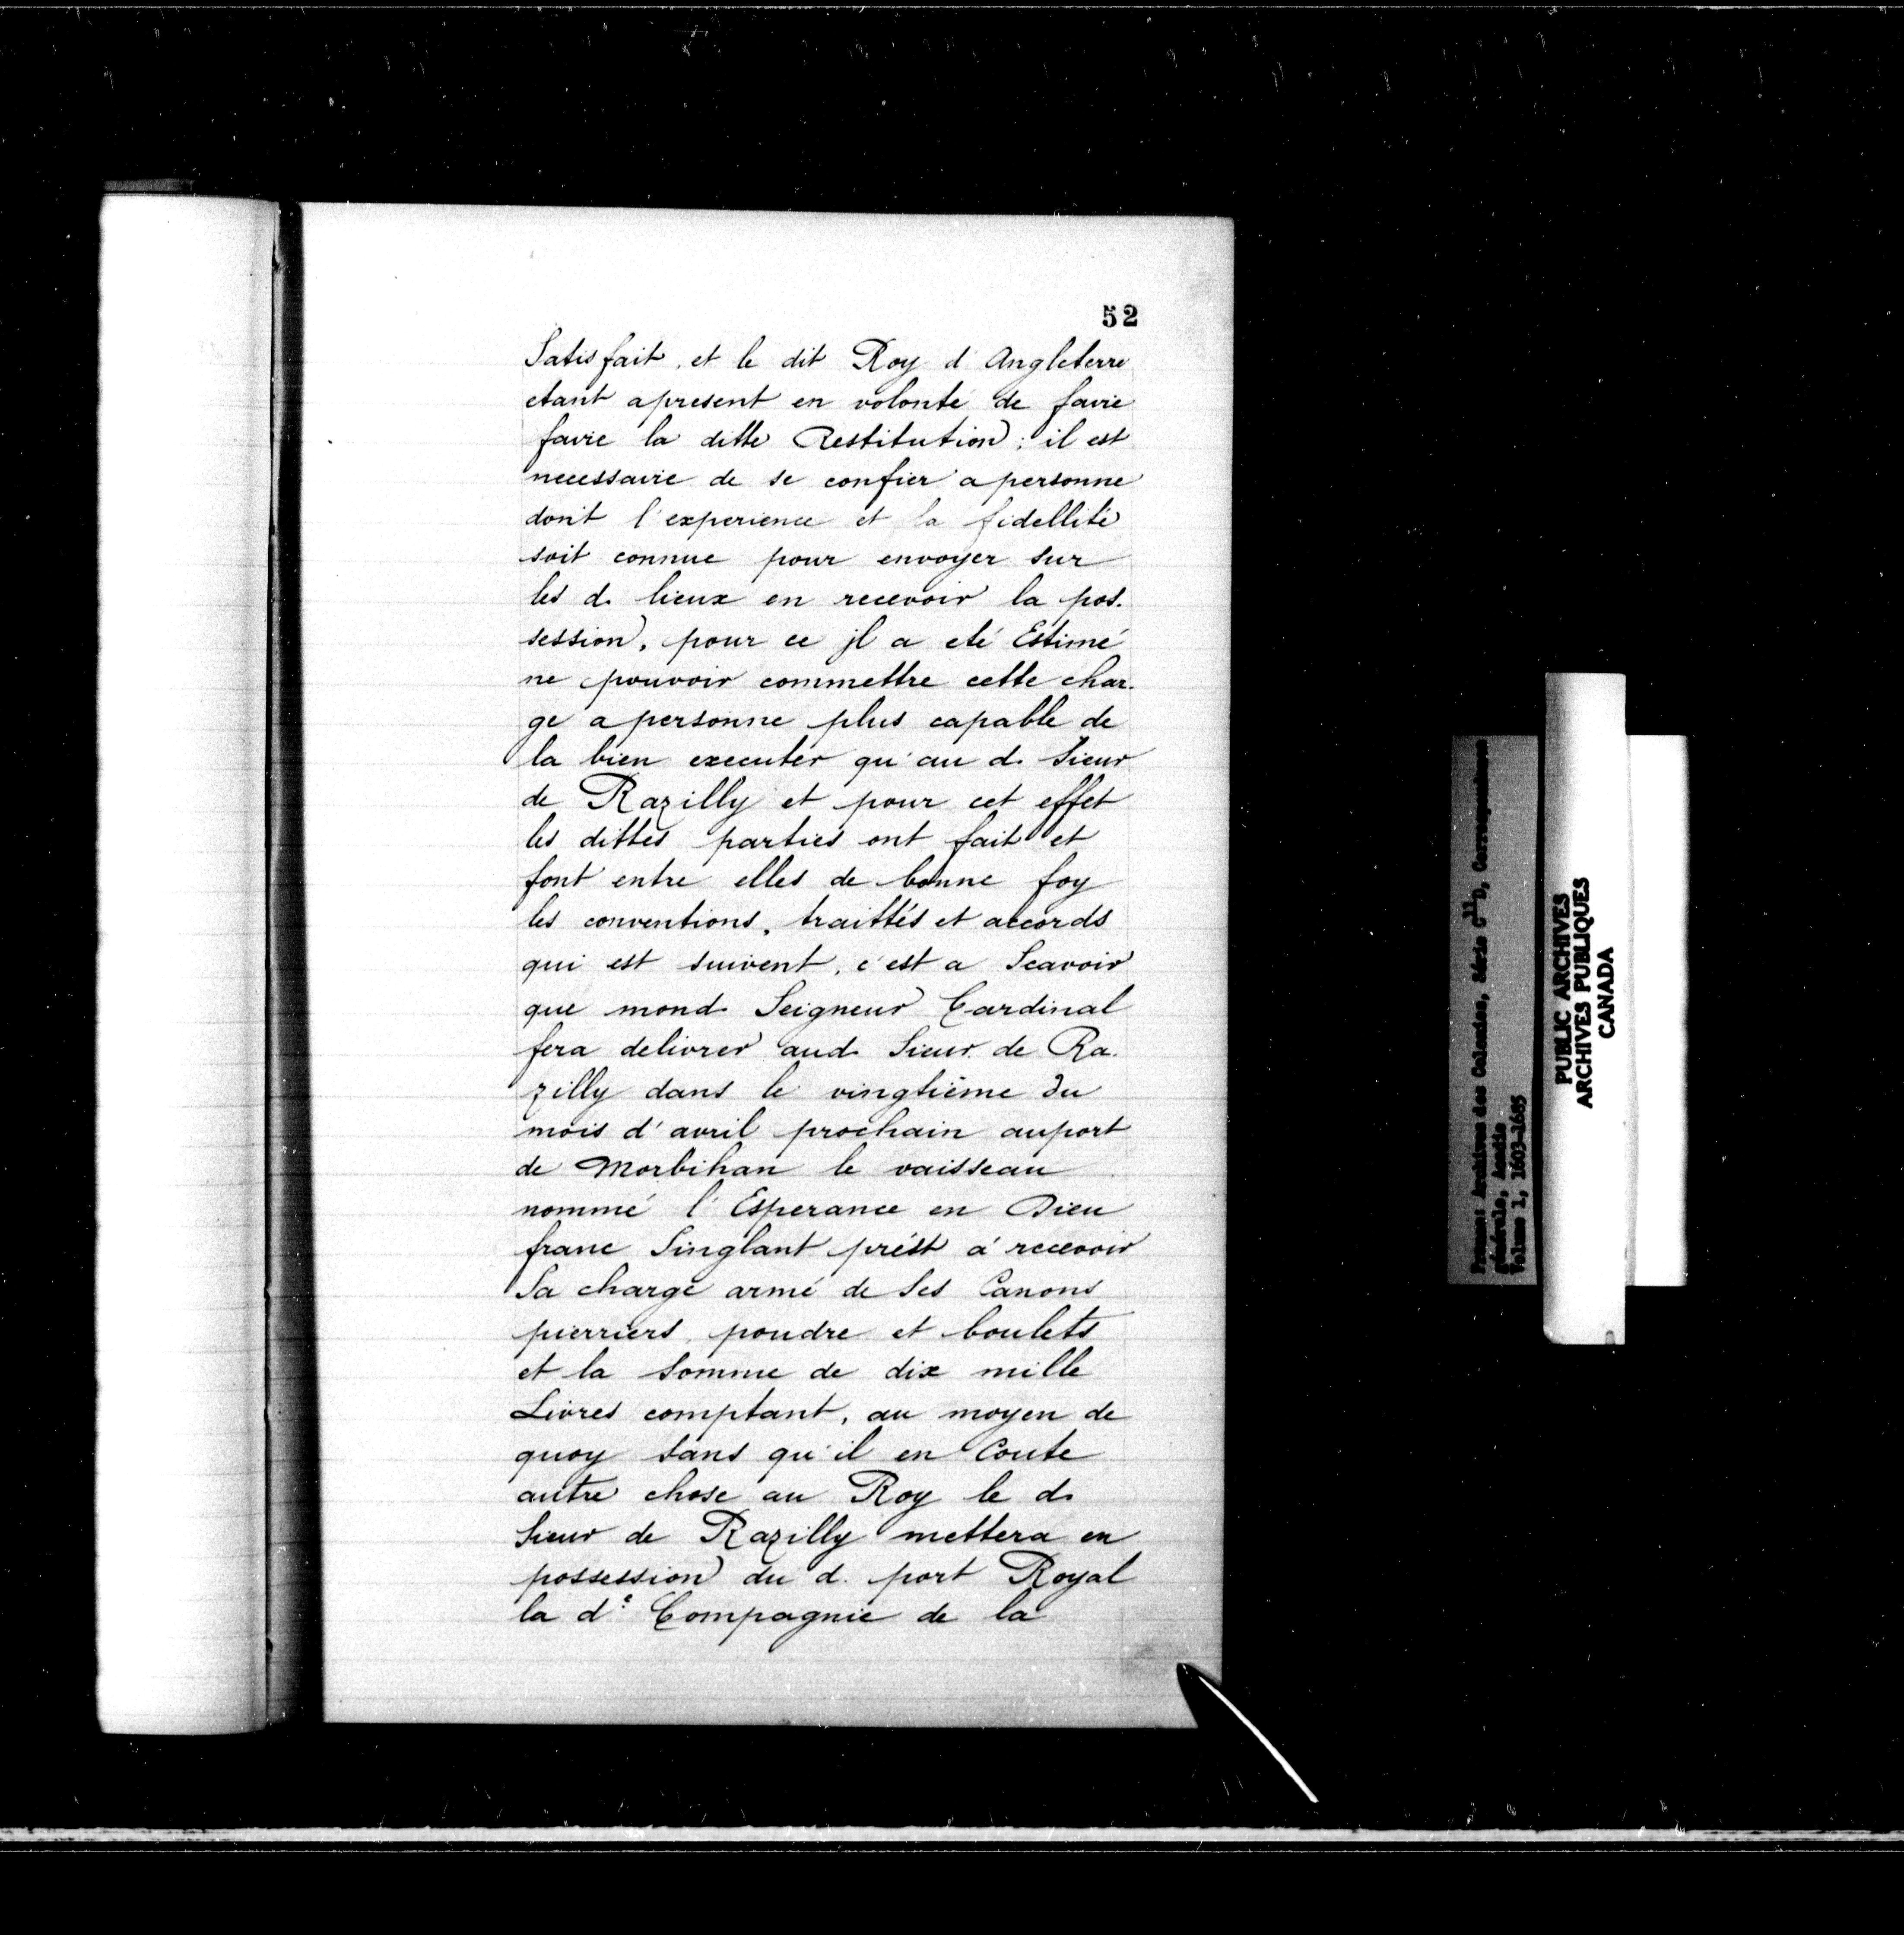 52
Satisfait, et le dit Roy d'Angleterre
etant apresent en volonté de faire
faire la ditte Restitution; il est
necessaire de se confier a personne
dont l'experience et la fidellité
soit connue pour envoyer sur
les d. lieux en recevoir la pos-
session, pour ce jl a eté Estimé
ne pouvoir commettre cette char-
ge a personne plus capable de
la bien executer qu'au d. Sieur
de Razilly et pour cet effet
les dittes parties ont fait et
font entre elles de bonne foy
les conventions, traittés et accords
qui est suivent, c'est a Scavoir
que mond. Seigneur Cardinal
fera delivrer aud. Sieur de Ra-
zilly dans le vingtième du
mois d'avril prochain auport
de Morbihan le vaisseau
nommé l'Esperance en Dieu
franc Singlant prést à recevoir
Sa charge armé de Ses Canons
pierriers, poudre et boulets
et la Somme de dix mille
Livres comptant, au moyen de
quoy sans qu'il en Coute
autre chose au Roy le d.
Sieur de Razilly mettera en
possession du d. port Royal
la d.e Compagnie de la
France: Archives des Colonies, Série C11D, Correspondance
générale, Acadie
Volume 1, 1603-1685
PUBLIC ARCHIVES
ARCHIVES PUBLIQUES
CANADA